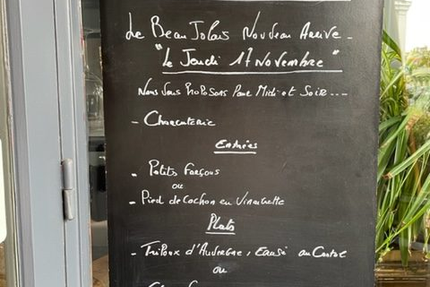 Le Beau Jolais Nouveau Arrive -
"Le Jeudi 17 Novembre"
Nous Vous Proposons Pour Midi et Soir ...
- Charcuterie
Entrées
- Petits Farçous
ou
- Pied de Cochon en Vinaigrette
Plats
- Tripoux d'Auvergne, Ecrasé au Cantal
ou